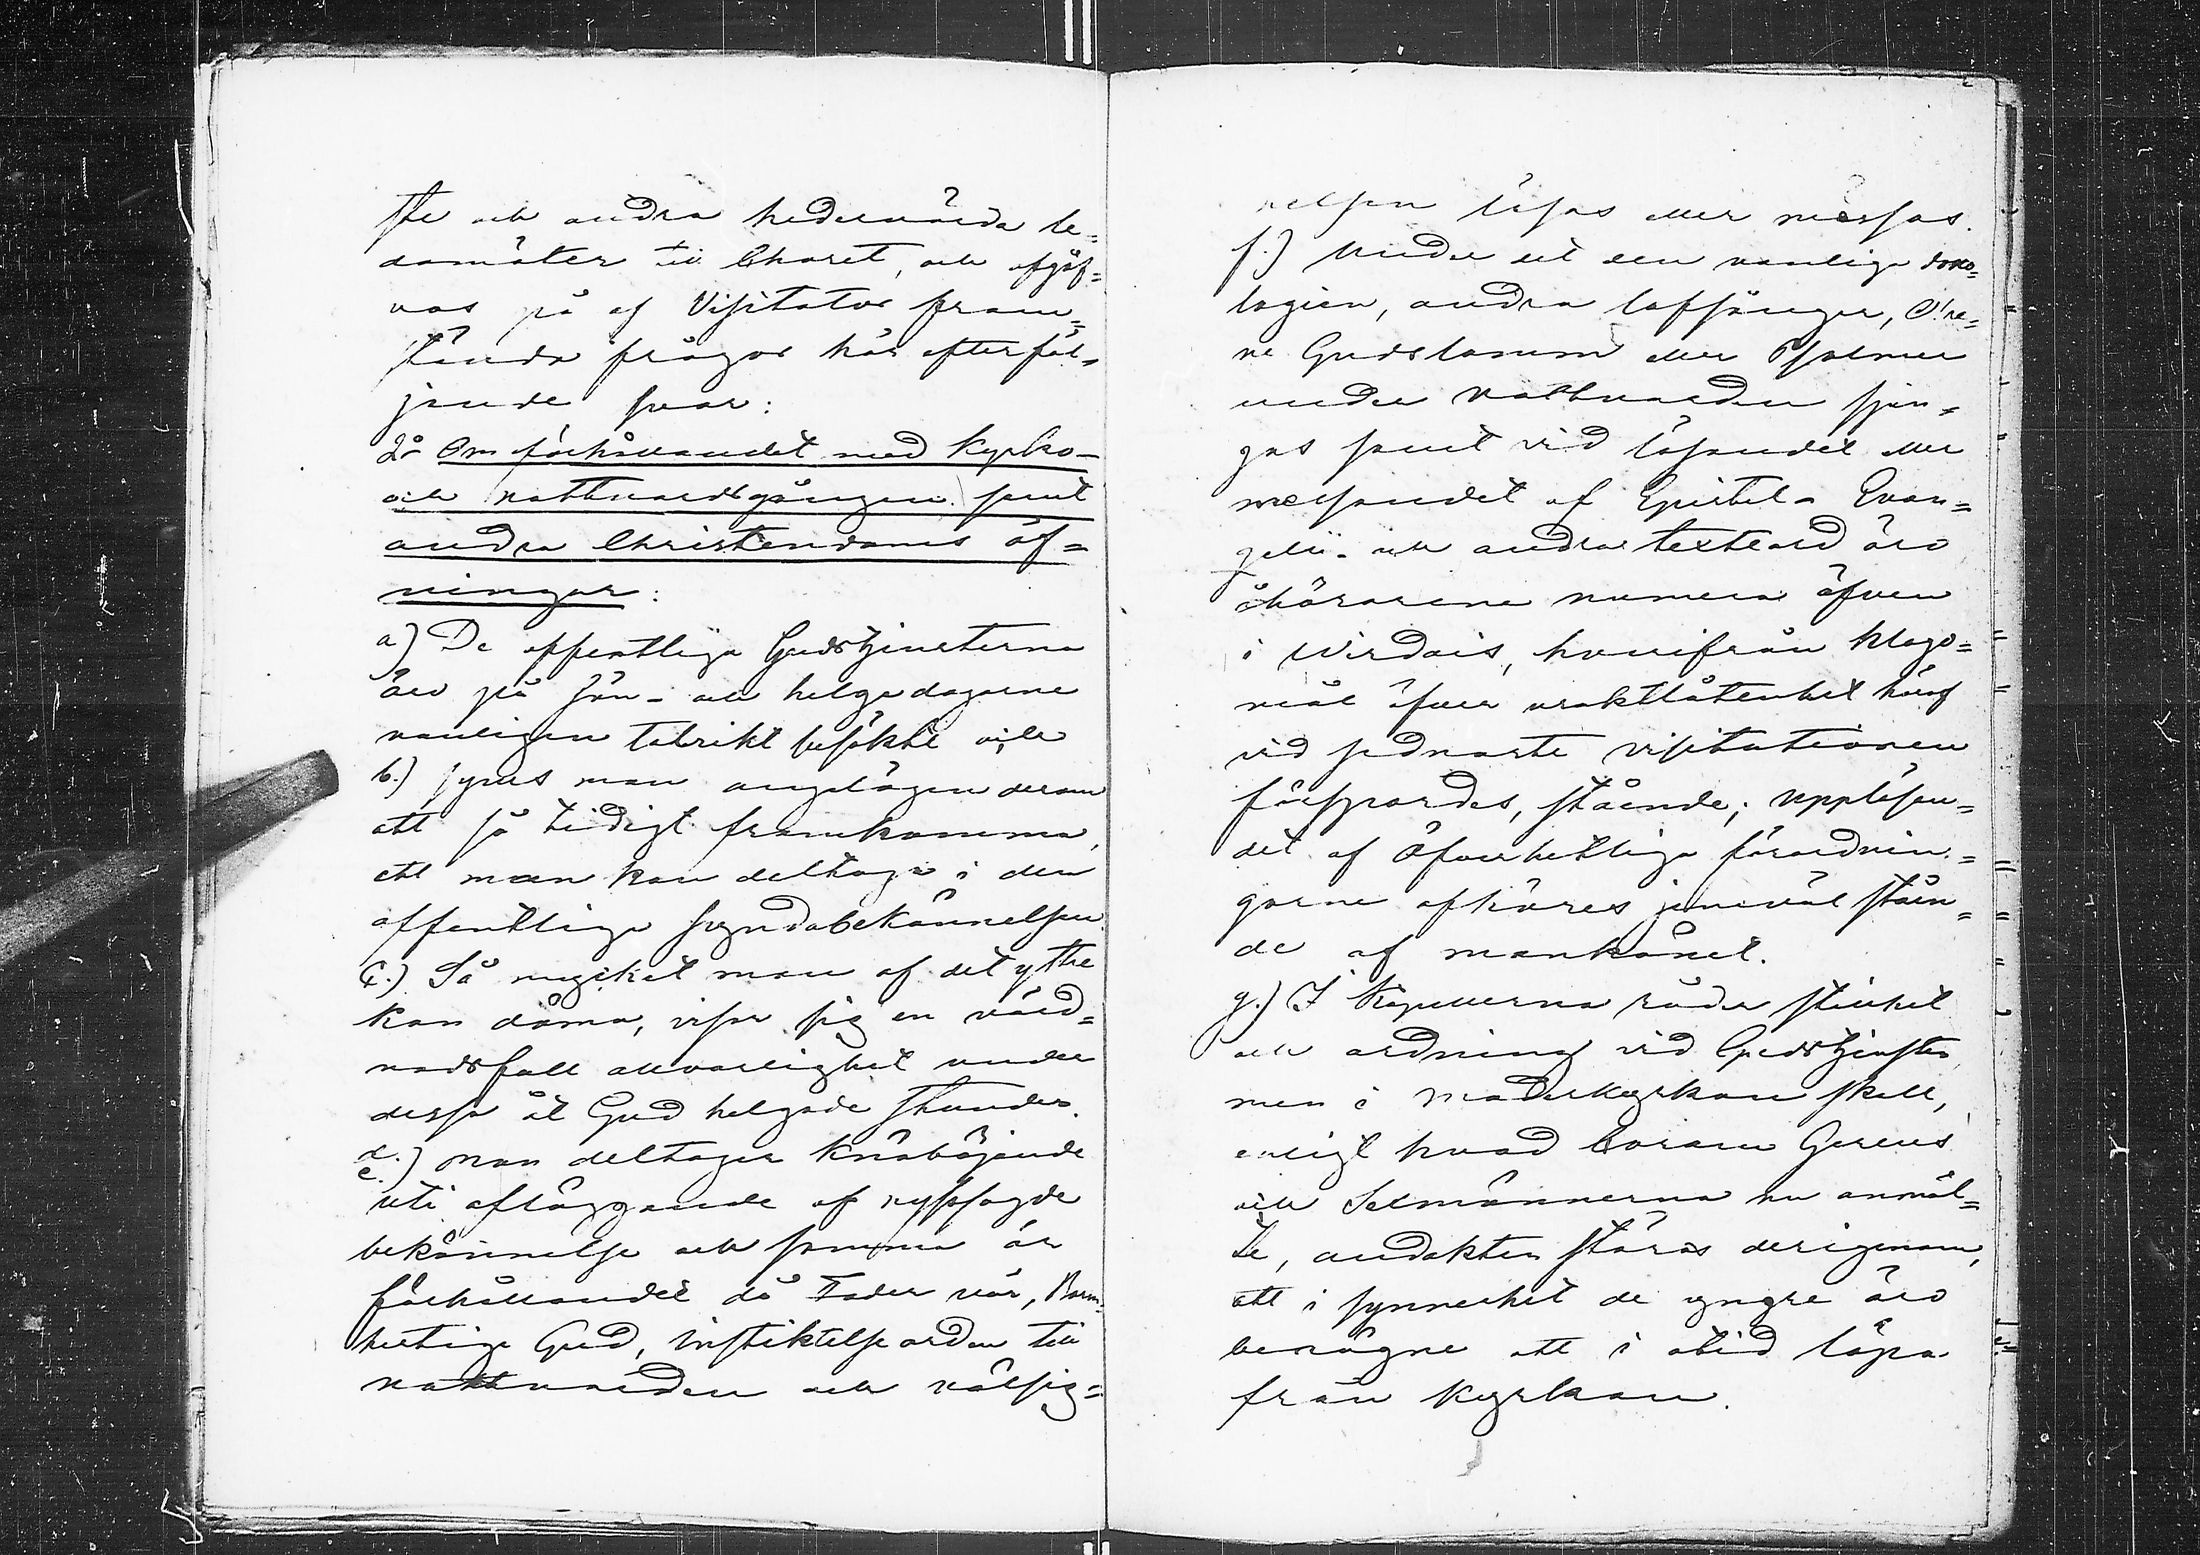 ste och andra hedervärda le=
damöter till Choret, och afgåf=
vos på af Visitator fram=
stända frågor här efterföl=
jande svar:
Om förhållandet med Kyrko-
och nattvardsgången samt
andra Christendoms öf=
ningar:
a) De offentliga Gudstjensterna
äro på Sön- och helgedagarne
vanligen talrikt besökte och
b.) synes man angelägen derom
att så tidigt framkomma,
att man kan deltaga i den
offentliga syndabekännelsen.
c.) Så mycket man af det yttre
kan döma, visar sig en vörd=
nadsfull allvarlighet under
dessa åt Gud helgade stunder.
d.) e.) Man deltager knäböjande
uti afläggande af nyssagde
bekännelse och samma är
förhållandet då Fader vår, Barm=
hertige Gud, Instiktelseorden till
nattvarden och välsig=
nelsen läsas eller messas.
f.) Under det den vanliga doxo=
logien, andra lofsånger, O! re=
ne Gudslamm eller Psalmer
under nattvarden sjun=
gas samt vid läsandet eller
messandet af Epistel- Evan=
gelii- och andra textord äro
åhörarene numera äfven
i Wirdois, hvarifrån klago=
mål öfver uraktlåtenhet häraf
vid sednaste visitationen
försporrdes, stående; uppläsan=
det af Öfverhetliga förordnin=
garne afhöres jemväl ståen=
de af mankönet.
g.) I Kapellerna råder stillhet
och ordning vid Gudstjensten
men i Moderkyrkan skall,
enligt hvad Coram Gerens
och Sexmännerna nu anmäl=
te, andakten störas derigenom,
att i synnerhet de yngre äro
benägne att i otid löpa
från Kyrkan.